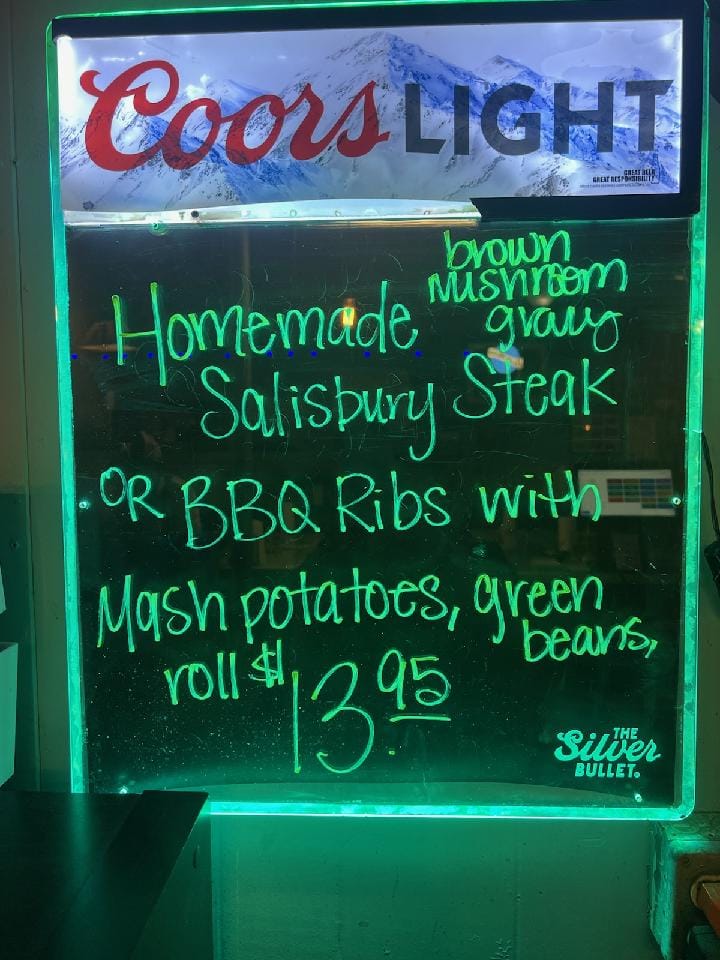 Coors LIGHT
GREAT BEER
GREAT RESPONSIBILITY
brown
mushroom
gravy
Homemade
Salisbury Steak
OR BBQ Ribs with
Mash potatoes, green
beans,
roll $13.95
THE
Silver
BULLET.